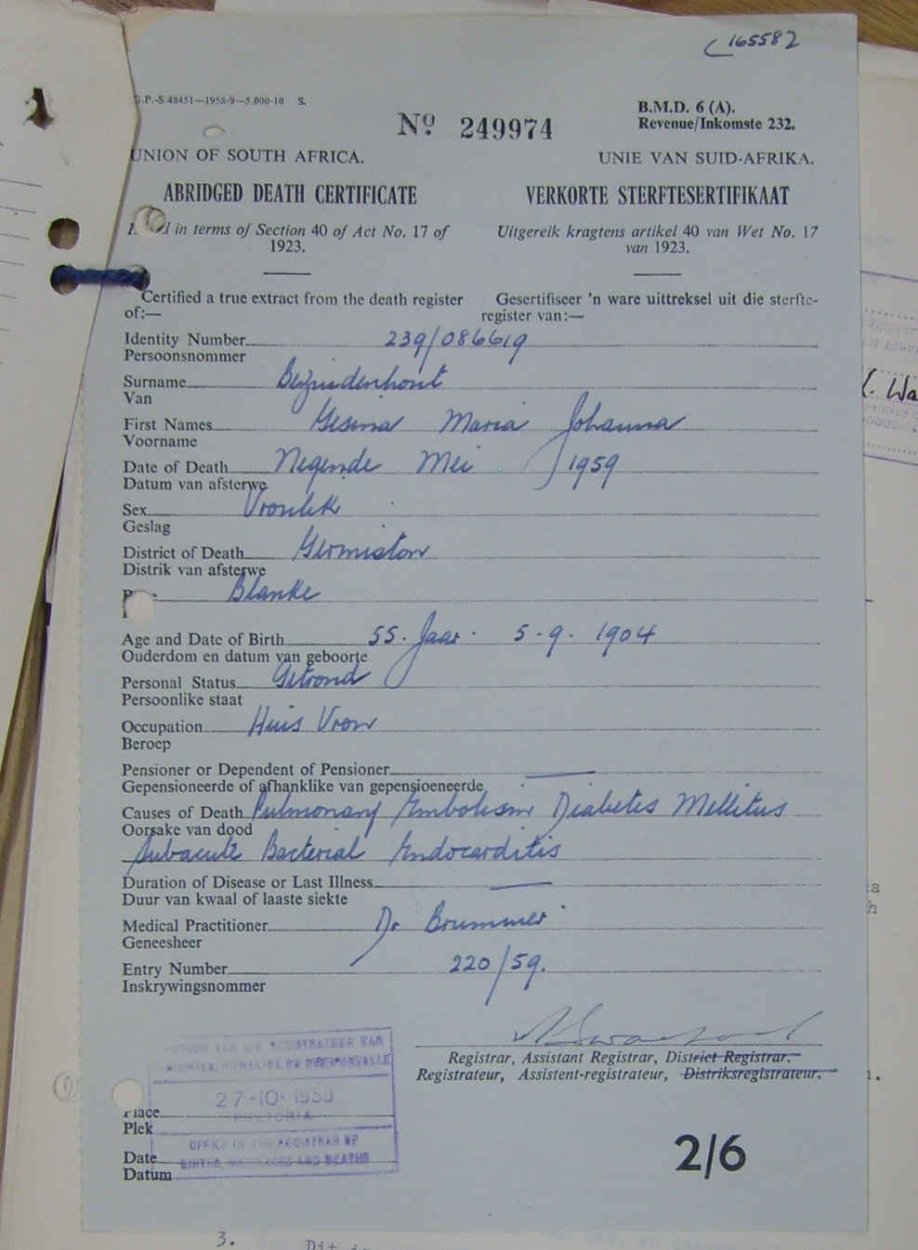 C 165582
G.P.-S 48451—1958-9—5,000-10 S.
B.M.D. 6 (A).
Revenue/Inkomste 232.
No 249974
UNION OF SOUTH AFRICA.
UNIE VAN SUID-AFRIKA.
ABRIDGED DEATH CERTIFICATE
VERKORTE STERFTESERTIFIKAAT
in terms of Section 40 of Act No. 17 of
1923.
Uitgereik kragtens artikel 40 van Wet No. 17
van 1923.
Certified a true extract from the death register
of:—
Gesertifiseer 'n ware uittreksel uit die sterfte-
register van:—
Identity Number 239/086619
Persoonsnommer
Surname Bezuidenhout
Van
First Names Gesina Maria Johanna
Voorname
Date of Death Negende Mei 1959
Datum van afsterwe
Sex Vroulik
Geslag
District of Death Germiston
Distrik van afsterwe
Blanke
Age and Date of Birth 55. Jaar. 5.9.1904
Ouderdom en datum van geboorte
Personal Status Getroud
Persoonlike staat
Occupation Huis Vrou
Beroep
Pensioner or Dependent of Pensioner —
Gepensioneerde of afhanklike van gepensioeneerde
Causes of Death Pulmonary Embolism Diabetes Mellitus
Oorsake van dood
Subacute Bacterial Endocarditis
Duration of Disease or Last Illness —
Duur van kwaal of laaste siekte
Medical Practitioner Dr Brummer
Geneesheer
Entry Number 220/59.
Inskrywingsnommer
Registrar, Assistant Registrar, District Registrar.
Registrateur, Assistent-registrateur, Distriksregistrateur.
27-10-1959
PRETORIA
Place
Plek
OFFICE OF THE REGISTRAR OF
BIRTHS, MARRIAGES AND DEATHS
Date
Datum
2/6
3.